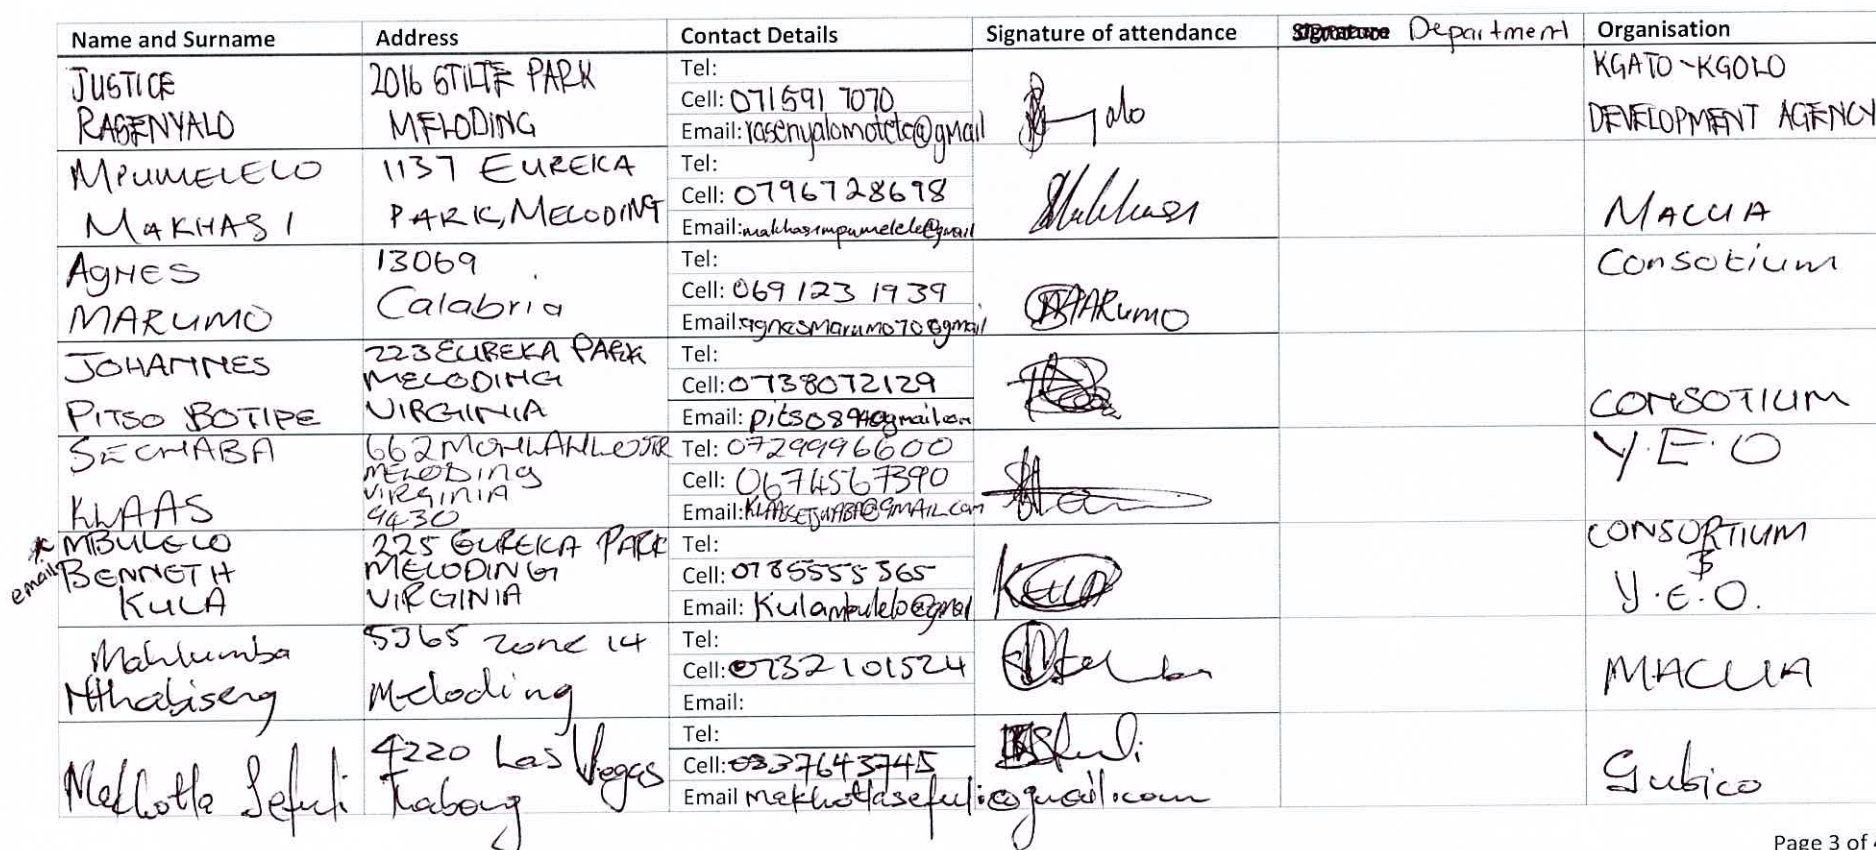 Name and Surname Address Contact Details Signature of attendance Signature Department Organisation
JUSTICE RASENYALO
2016 STILTE PARK MELODING
Tel:
Cell: 071591 7070
Email: rasenyalomotete@gmail
KGATO-KGOLO DEVELOPMENT AGENCY
MPUMELELO MAKHASI
1137 EUREKA PARK, MELODING
Tel:
Cell: 0796728698
Email: makhasimpumelele@gmail
MACUA
AGNES MARUMO
13069 Calabria
Tel:
Cell: 069 123 1939
Email: agnesmarumo70@gmail
MARUMO
Consotium
JOHANNES PITSO BOTIPE
223 EUREKA PARK MELODING VIRGINIA
Tel:
Cell: 0738072129
Email: pitso894@gmail.com
CONSOTIUM
SECHABA KLAAS
662 MOHLAHLE STR MELODING VIRGINIA 9430
Tel: 0729996600
Cell: 0674567390
Email:
Y.E.O
* email
MBULELO BENNETH KULA
225 EUREKA PARK MELODING VIRGINIA
Tel:
Cell: 0785555365
Email: Kulambulelo@gmail
CONSORTIUM $ Y.E.O.
Mahlumba Nthabiseng
5365 zone 14 Meloding
Tel:
Cell: 0732101524
Email:
MACUA
Makhotla Sefuli
4220 Las Vegas Thabong
Tel:
Cell: 0837643745
Email makhotlasefuli@gmail.com
Gubico
Page 3 of